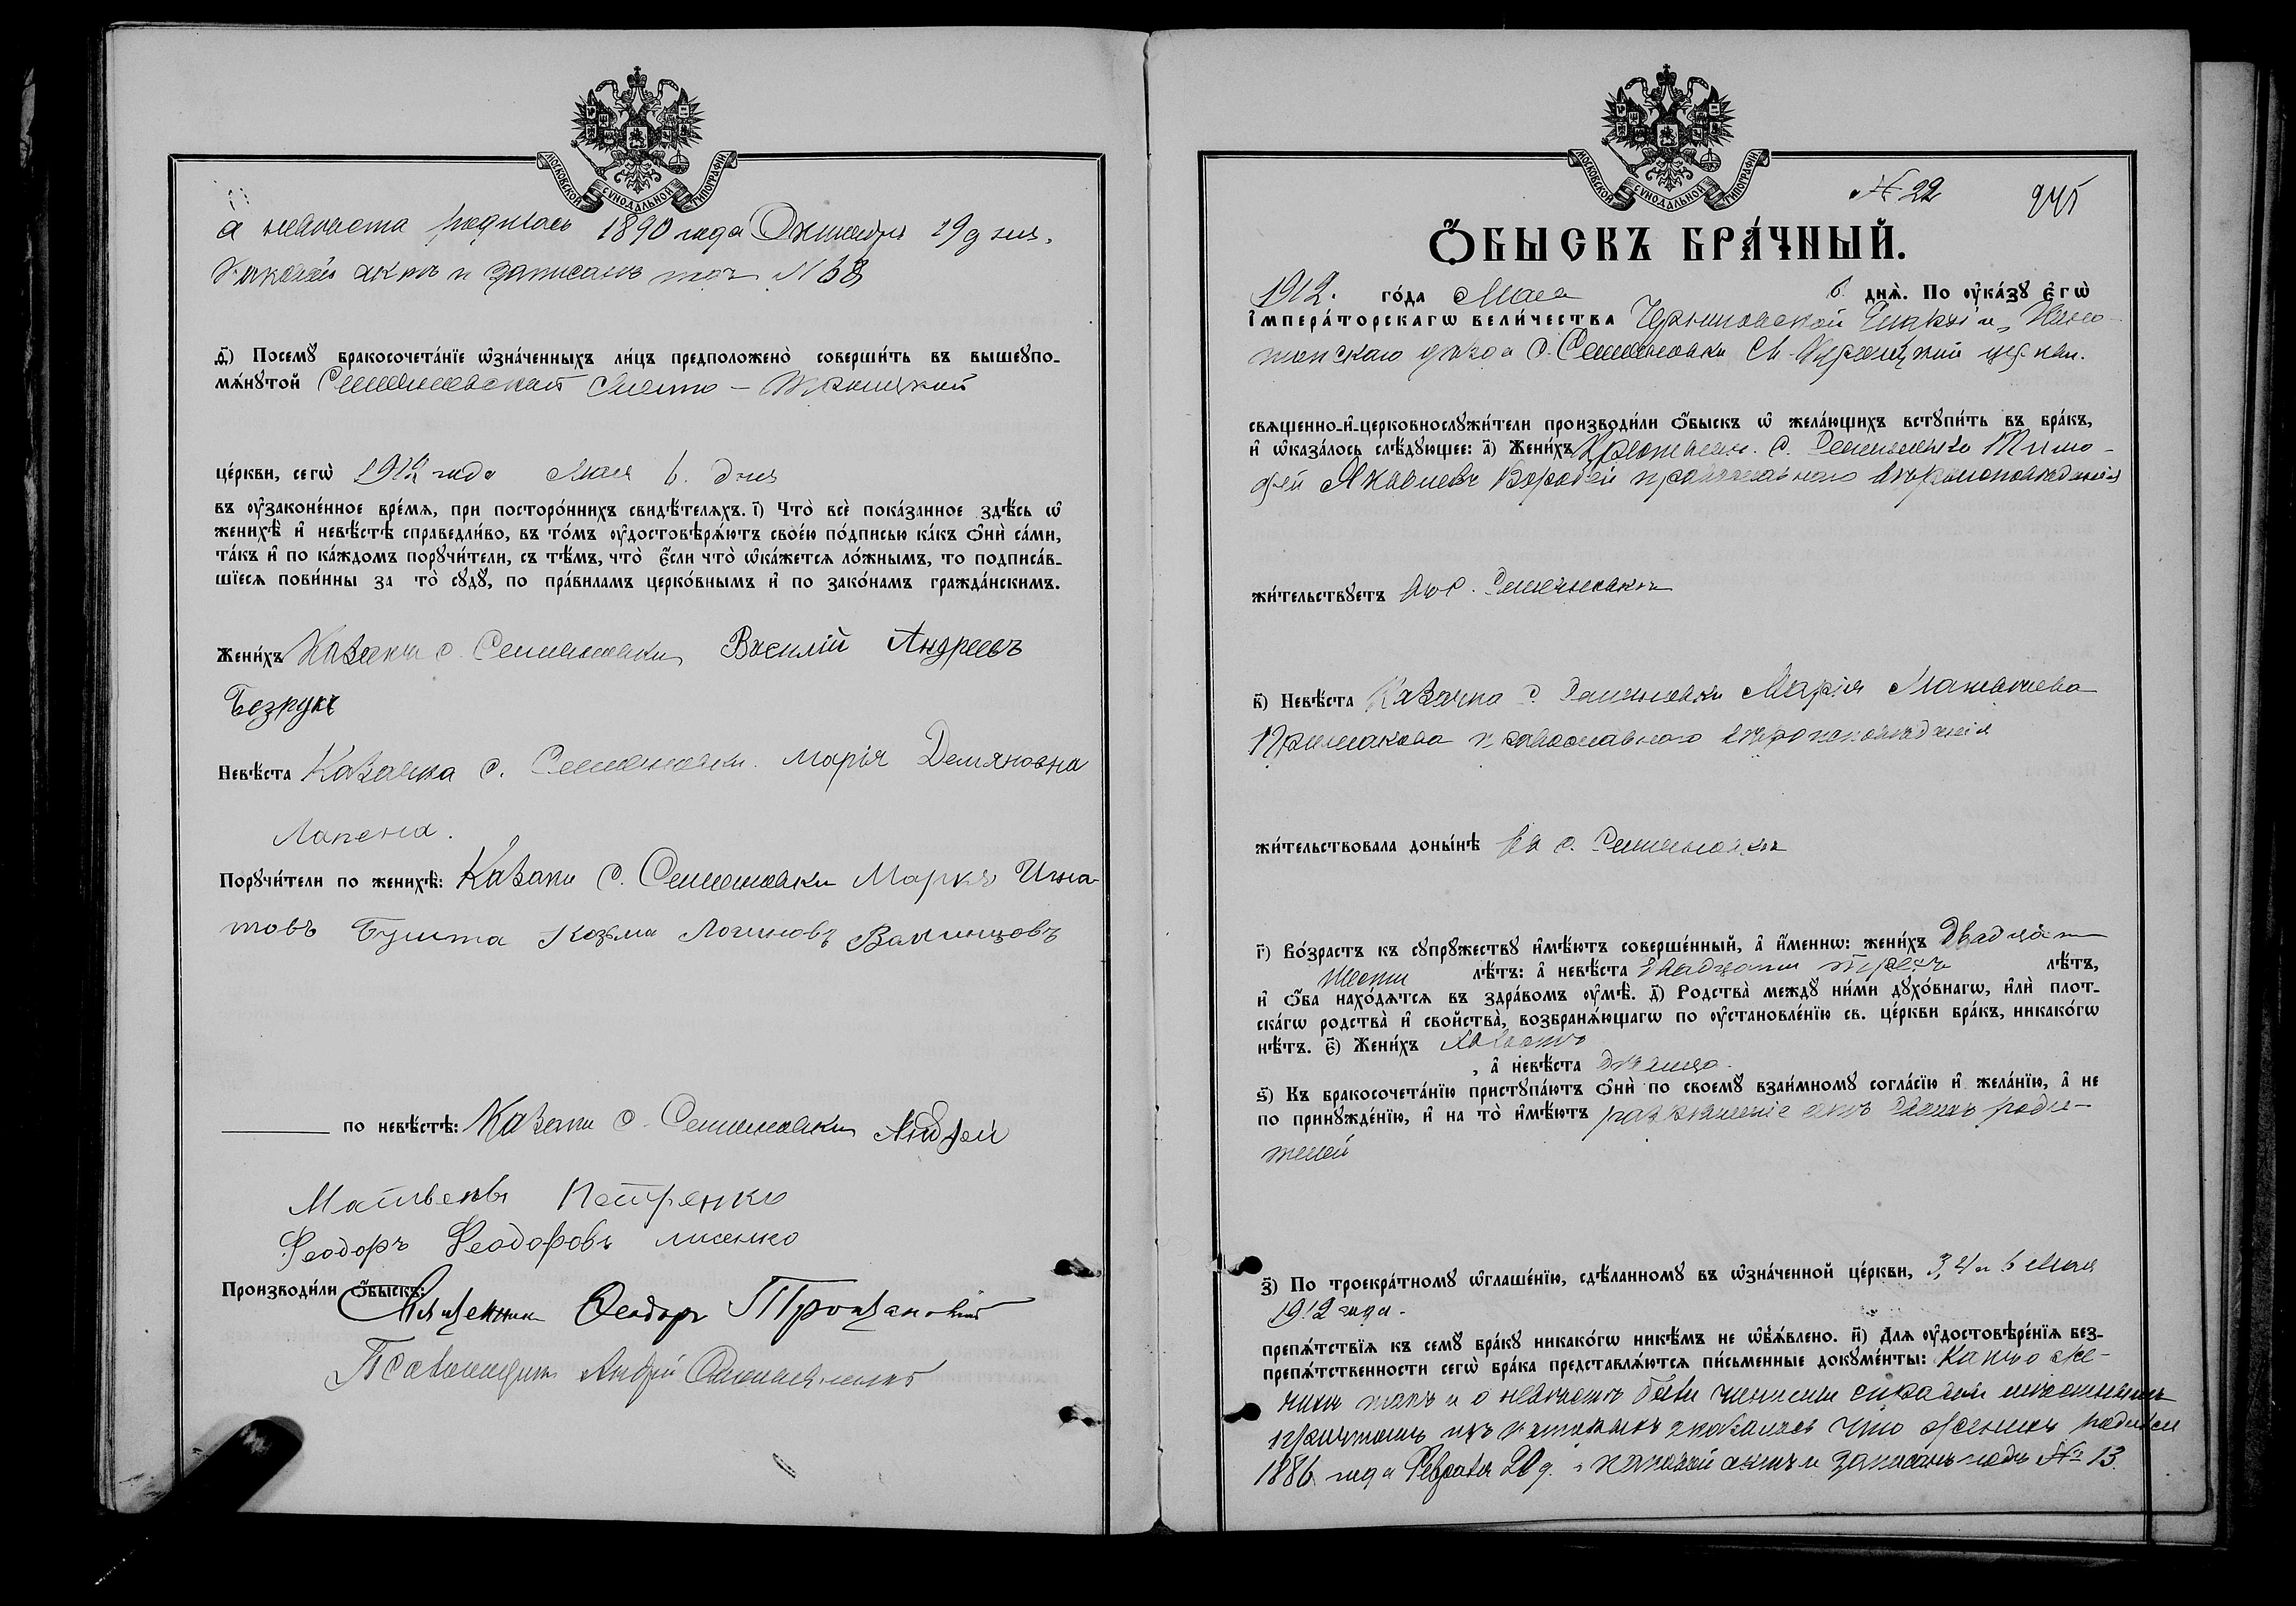 МОСКОВСКОЙ СѴНОДАЛЬНОЙ ТИПОГРАФІИ
а невѣста родилась 1890 года Октября 29 дня,
каковой актъ и записанъ под № 68
ѳ҃) Посемꙋ бракосочета́нїе ѡ҆зна́ченныхъ ли́цъ предположено̀ соверши́ть въ вышеꙋпо-
мѧ́нꙋтой Семеновской Свято-Троицкой
це́ркви, сегѡ̀ 1912 года Мая 6. дня
въ ᲂу҆зако́ненное вре́мѧ, при посторо́ннихъ свидѣ́телѧхъ. і҃) Что̀ всѐ пока́занное здѣ́сь ѡ҆
женихѣ̀ и҆ невѣ́стѣ справедли́во, въ то́мъ ᲂу҆достовѣрѧ́ютъ свое́ю по́дписью ка́къ ѻ҆нѝ са́ми,
та́къ и҆ по ка́ждомъ порꙋчи́тели, съ тѣ́мъ, что̀ є҆́сли что̀ ѡ҆ка́жетсѧ ло́жнымъ, то подписа́в-
шїесѧ пови́нны за то̀ сꙋдꙋ̀, по пра́виламъ церко́внымъ и҆ по зако́намъ гражда́нскимъ.
Жени́хъ Казакъ с. Семеновки Василій Андреевъ
Безрукъ
Невѣ́ста Казачка с. Семеновки Марія Демяновна
Лапена.
Порꙋчи́тели по женихѣ̀: Казаки с. Семеновки Маркъ Игна-
товъ Козьма Логиновъ
по невѣ́стѣ: Казаки с. Семеновки Андрей
Матвеевъ Петренко
Феодоръ Феодоровъ Лисенко
Производи́ли ѻ҆́быскъ:
Священникъ Феодоръ
Псаломщикъ Андрей
МОСКОВСКОЙ СѴНОДАЛЬНОЙ ТИПОГРАФІИ
№ 22
ѺБЫСКЪ БРА́ЧНЫЙ.
1912. го́да Мая 6. днѧ̀. По ᲂу҆ка́зꙋ є҆гѡ̀
і҆мпера́торскагѡ вели́чества Черниговской Епархіи, Коно-
топскаго уѣзда с. Семеновки Св. Троицкой церкви.
свѧщенно-и҆-церковнослꙋжи́тели производи́ли ѻ҆́быскъ ѡ҆ жела́ющихъ встꙋпи́ть въ бра́къ,
и҆ ѡ҆каза́лось слѣ́дꙋющее: а҃) Жени́хъ с. Семеновки Тимо-
фей Яковлевъ Воробей православнаго вѣроисповѣданія
жи́тельствꙋетъ въ с. Семеновкѣ
в҃) Невѣ́ста Казачка с. Семеновки Марія
Примакова православнаго вѣроисповѣданія
жи́тельствовала доны́нѣ въ с. Семеновкѣ
г҃) Во́зрастъ къ сꙋпрꙋ́жествꙋ и҆мѣ́ютъ соверше́нный, а҆ и҆́меннѡ: жени́хъ двадцати
шести лѣ́тъ: а҆ невѣ́ста двадцати трехъ лѣ́тъ,
и҆ ѻ҆́ба нахо́дѧтсѧ въ здра́вомъ ᲂу҆мѣ̀. д҃) Родства̀ междꙋ̀ ни́ми дꙋхо́внагѡ, и҆лѝ плот-
ска́гѡ родства̀ и҆ свойства̀, возбранѧ́ющагѡ по ᲂу҆становле́нїю св. це́ркви бра́къ, никако́гѡ
нѣ́тъ. є҃) Жени́хъ холостъ
, а҆ невѣ́ста дѣвица.
ѕ҃) Къ бракосочета́нїю пристꙋпа́ютъ ѻ҆нѝ по своемꙋ̀ взаи́мномꙋ согла́сїю и҆ жела́нїю, а҆ не
по принꙋжде́нїю, и҆ на то̀ и҆мѣ́ютъ разрѣшеніе отъ своихъ роди-
телей
з҃) По троекра́тномꙋ ѡ҆глаше́нїю, сдѣ́ланномꙋ въ ѡ҆зна́ченной це́ркви, 3, 4 и 6 Мая
1912 года.
препѧ́тствїѧ къ семꙋ̀ бра́кꙋ никако́гѡ никѣ́мъ не ѡ҆б̾ѧ́влено. и҃) Длѧ ᲂу҆достовѣре́нїѧ без-
препѧ́тственности сегѡ̀ бра́ка представлѧ́ютсѧ пи́сьменные докꙋме́нты: Какъ о же-
нихѣ такъ и о невѣстѣ были
причтомъ изъ которыхъ оказалось что женихъ родился
1886 года Февраля 20 д. каковой актъ и записанъ подъ № 13.